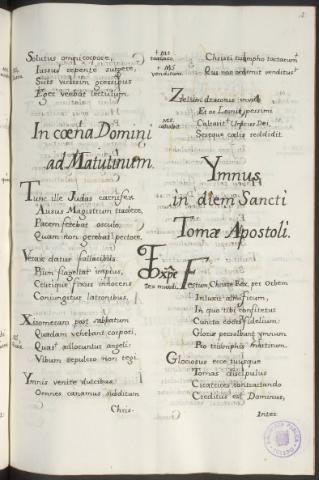 Solutus omni corpore,
Iussus repente surgere,
Suis vicissim gressibus
Eger vehebat lectulum.
In cœna Domini
ad Matutinum.
Tunc ille Judas carnifex
Ausus Magistrum tradere,
Pacem ferebat osculo,
Quam non gerebat pectore.
Verax datur fallacibus
Pium flagellat impius,
Crucique fixus innocens
Coniungitur latronibus,
Xeromyrram post sabbatum
Quedam vehebant corpori,
Quas adlocuntur angeli
Vibum sepulcro non tegi.
Ymnis venite dulcibus
Omnes canamus subditum
Chris-
Christi triumpho tartarum
Qui nos redemit venditus
Zelum draconis invidi
Et os Leonis pessimi
Calcavit Unicus Dei,
Seseque cœlis reddidit.
Ymnus
in diem Sancti
Tomæ Apostoli.
Festum, Christe Rex, per Orbem
Inluxit almificum,
In quo tibi confletus
Cuncta cordis fidelium
Glorie persolbunt ymnum
Pro triumphis martirum.
Gloriosus ecce tuusque
Tomas discipulus
Cicatrices contractando
Creditus est Dominus,
Inter